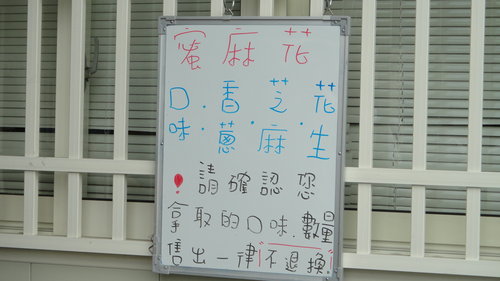 蜜麻花
口味.香蔥.芝麻.花生
！請確認您
拿取的口味.數量
售出一律「不退換」